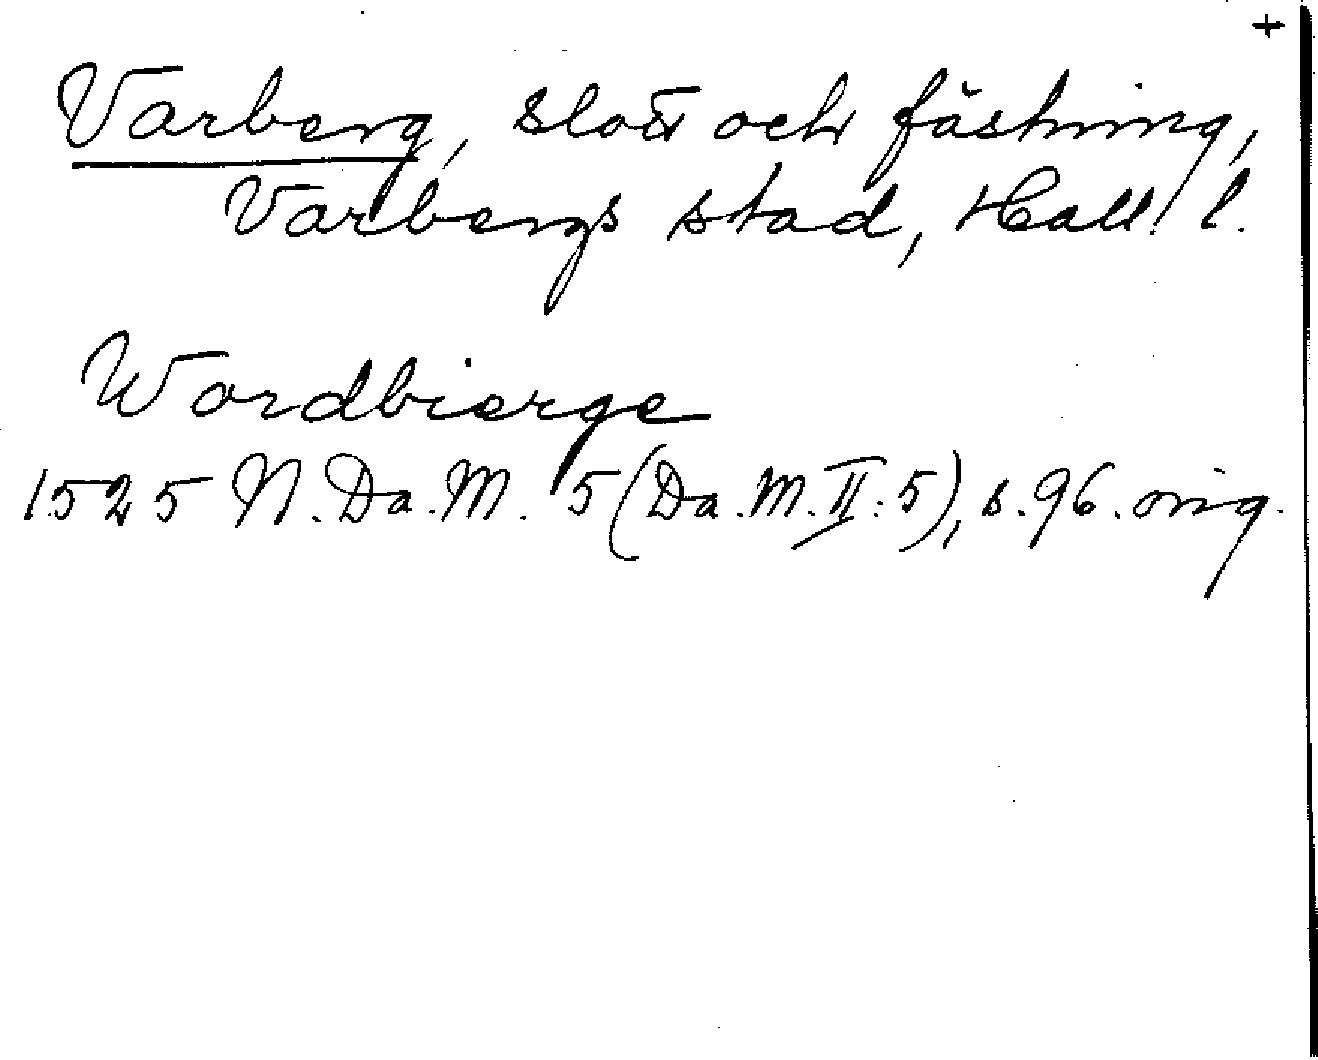 +
Varberg, slott och fästning,
Varbergs stad, Hall. l.
Wardbierge
1525 N. Da. M. 5 (Da. M. II: 5), s. 96. orig.